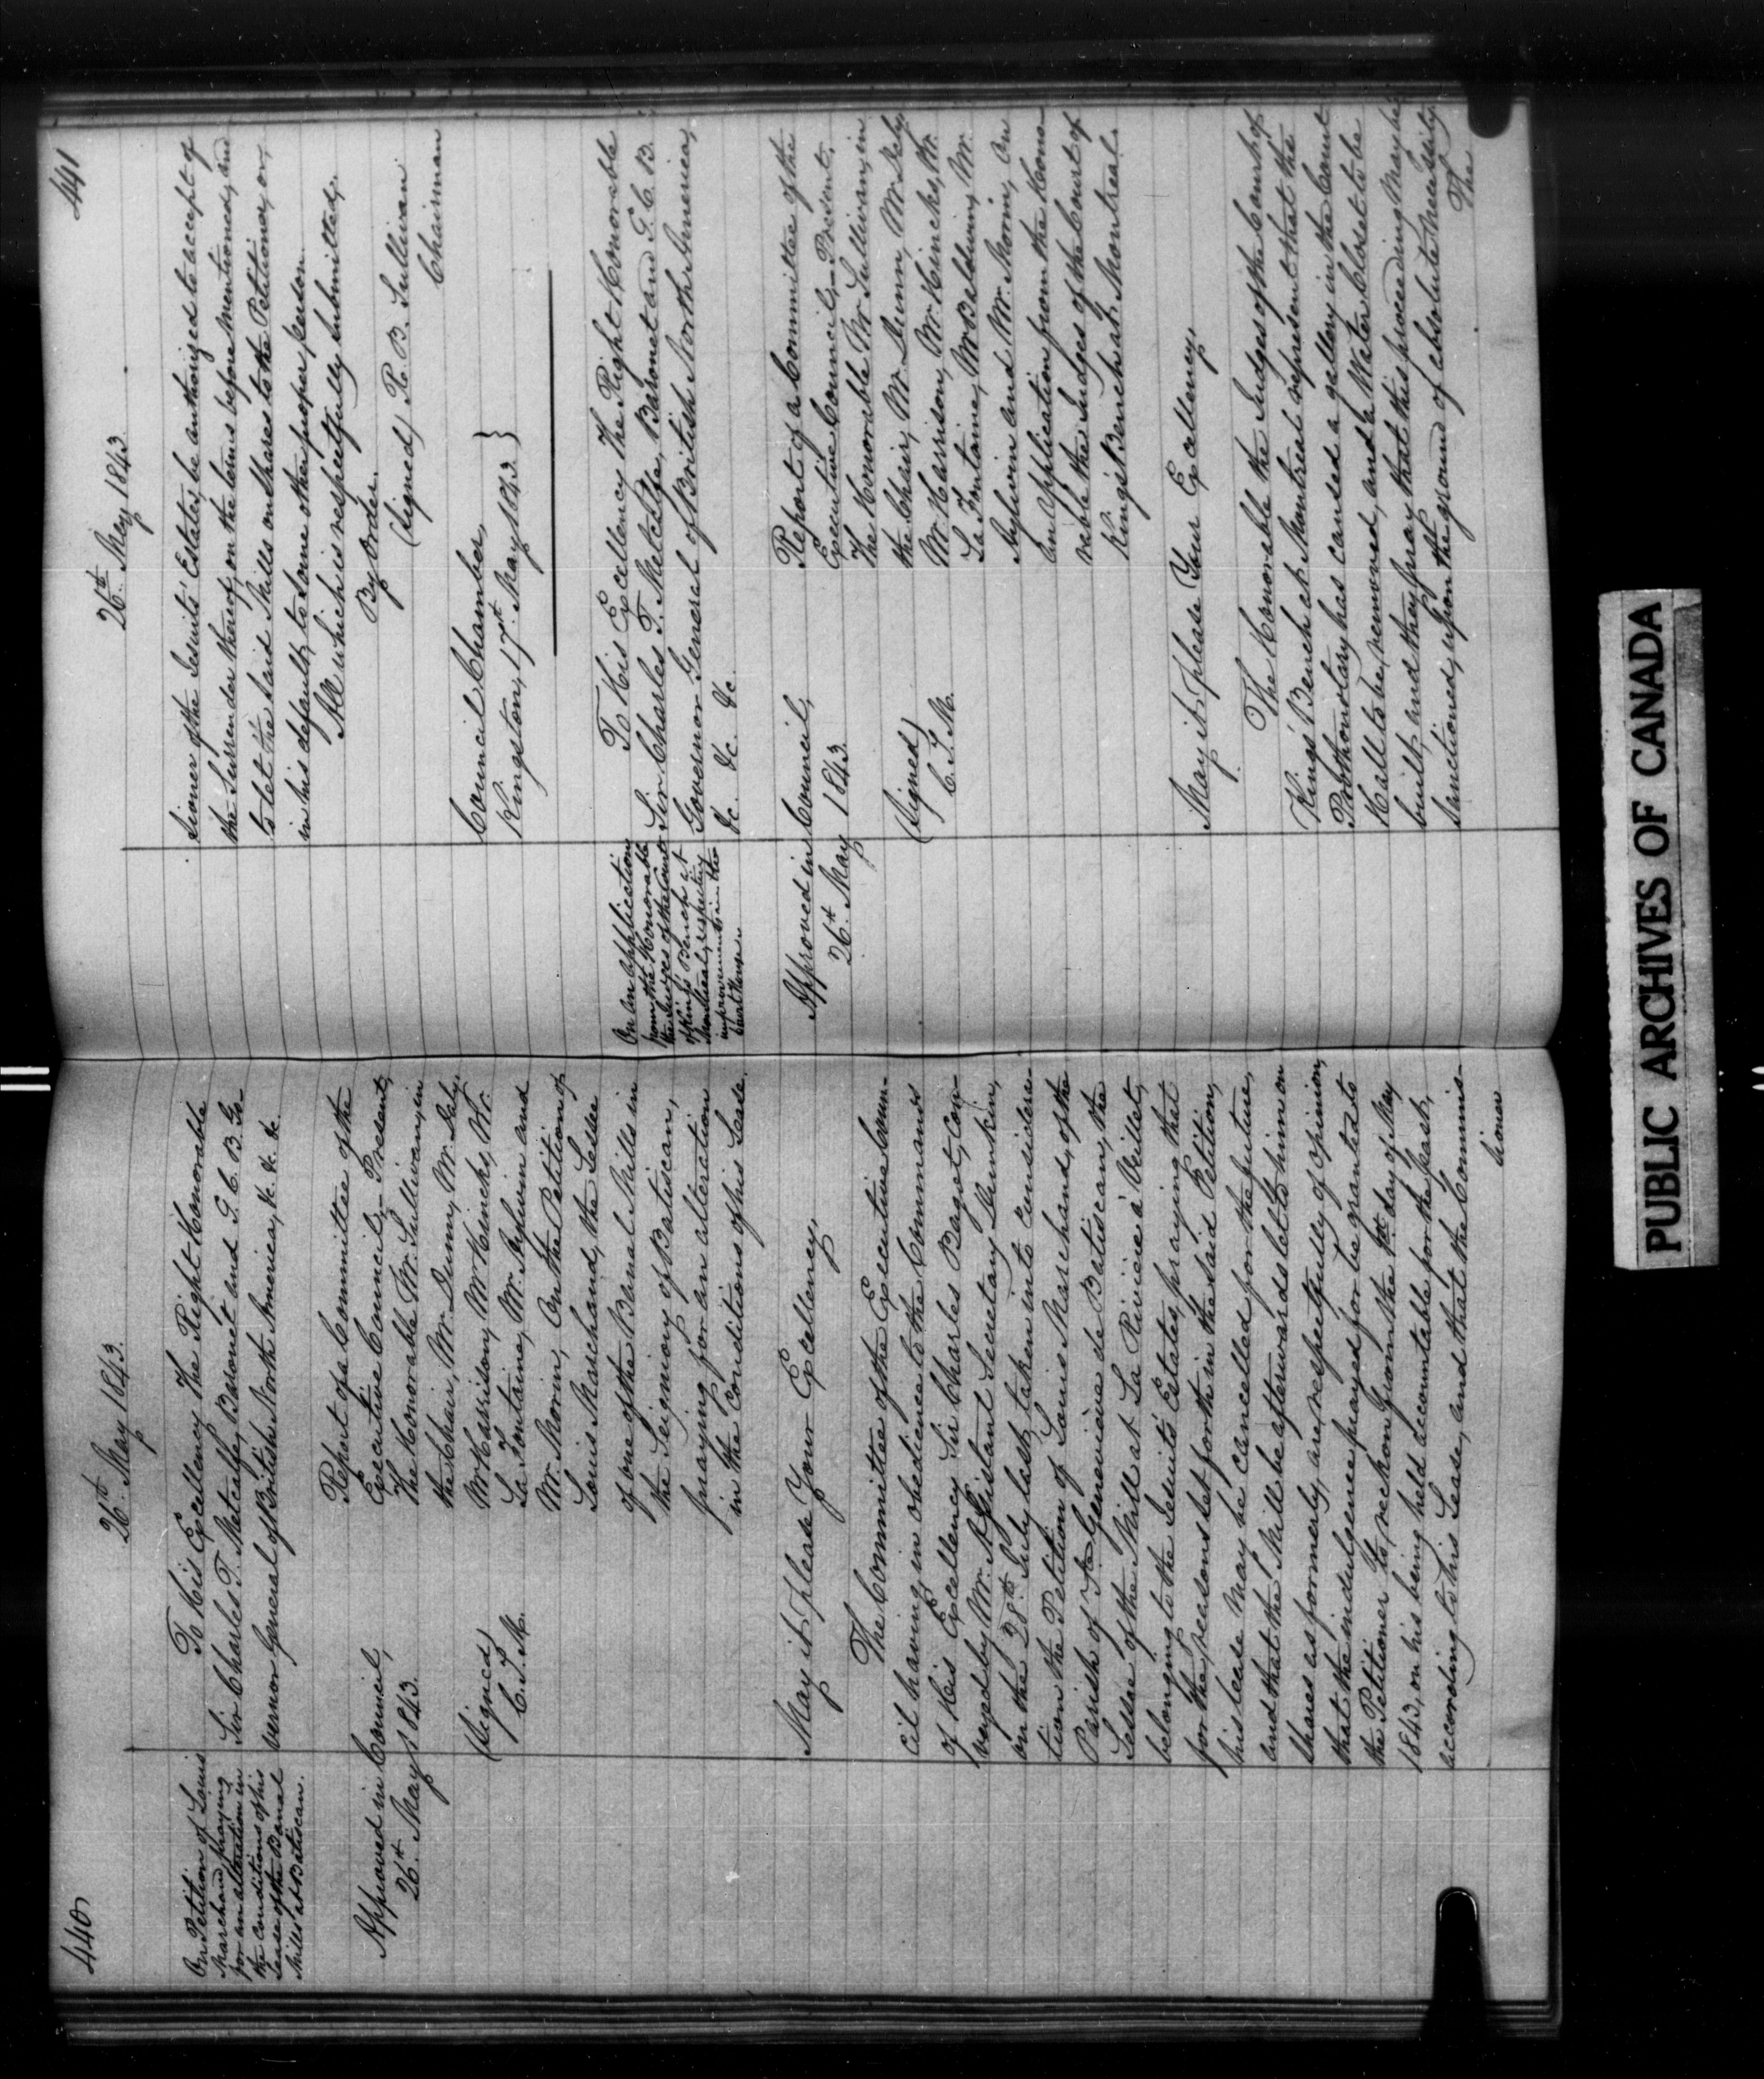 440
26th May 1843.
On Petition of Louis
Marchand praying
for an alteration in
the conditions of his
Lease of the Banal
Mills at Batiscan.
To His Excellency The Right Honorable
Sir Charles T. Metcalfe, Baronet and G. C. B. Go-
vernor General of British North America, &c. &c. &c.
Approved in Council,
26th May 1843.
(Signed)
C. T. M.
Report of a Committee of the
Executive Council,— Present,
The Honorable Mr. Sullivan, in
the Chair, Mr. Dunn, Mr. Daly,
Mr Harrison, Mr Hincks, Mr.
La Fontaine, Mr. Aylwin and
Mr. Morin, On the Petition of
Louis Marchand, the Lessee
of one of the Banal Mills in
the Seigniory of Batiscan,
praying for an alteration
in the Conditions of his Lease.
May it please Your Excellency,
The Committee of the Executive Coun-
cil having, in obedience to the Commands
of His Excellency Sir Charles Bagot, Con-
veyed by Mr. Assistant Secretary Dunkin,
on the 28th July last, taken into Considera-
tion the Petition of Louis Marchand, of the
Parish of Ste Genevieve de Batiscan, the
Lessee of the Mill at La Riviere à Veillet,
belonging to the Jesuits' Estates, praying that
for the reasons set forth in the said Petition,
his lease may be cancelled for the future,
and that the Mill be afterwards let to him on
shares as formerly, are respectfully of opinion,
that the indulgence prayed for be granted to
the Petitioner to reckon from the 1st day of May
1843, on his being held accountable for the past,
according to his Lease, and that the Commis-
sioner
441
26th May 1843.
sioner of the Jesuits' Estates, be authorized to accept of
the Surrender thereof, on the terms before mentioned, and
to let the said Mills on shares to the Petitioner, or,
in his default, to some other proper person.
All which is respectfully submitted,
By order.
(Signed) R. B. Sullivan
Chairman
Council Chamber,
Kingston, 17th May 1843. }
On an application
from the Honorable
the Judges of the Court
of King's Bench at
Montreal, respecting
improvements in the
Court House.
To His Excellency The Right Honorable
Sir Charles T. Metcalfe, Baronet and G. C. B.
Governor General of British North America,
&c. &c. &c.
Approved in Council,
26th May 1843.
(Signed)
C. T. M.
Report of a Committee of the
Executive Council,— Present,
The Honorable Mr Sullivan, in
the Chair, Mr. Dunn, Mr. Daly
Mr. Harrison, Mr. Hincks, Mr.
La Fontaine, Mr Baldwin, Mr.
Aylwin and Mr. Morin, On
an application from the Hono-
rable the Judges of the Court of
King's Bench at Montreal.
May it please Your Excellency,
The Honorable the Judges of the Court of
King's Bench at Montreal represent that the
Prothonotary has caused a gallery in the Court
Hall to be removed, and a Water Closet to be
built, and they pray that this proceeding may be
sanctioned, upon the ground of absolute necessity.
The
PUBLIC ARCHIVES OF CANADA